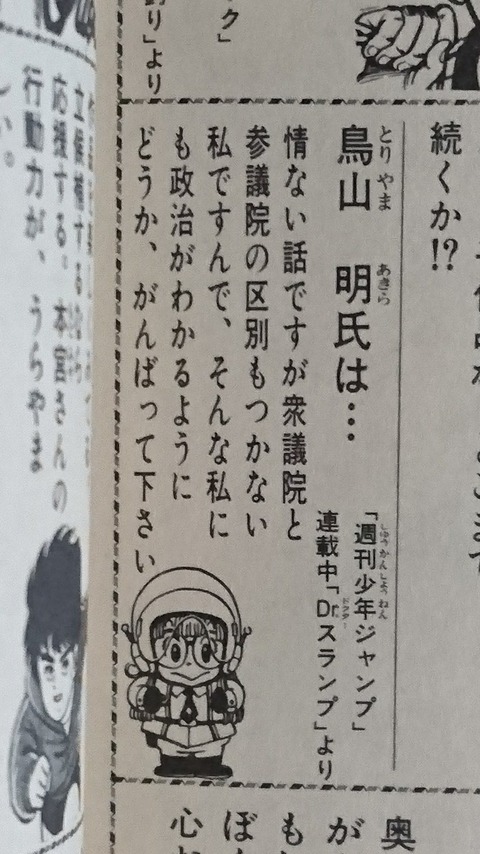 続くか!?
鳥山　明氏は…
とりやま
あきら
「週刊少年ジャンプ」
しゅうかんしょうねん
連載中「Dr.スランプ」より
ドクター
情ない話ですが衆議院と
参議院の区別もつかない
私ですんで、そんな私に
も政治がわかるように
どうか、がんばって下さい
ク」
り」より
奥
が
も
ぼ
心
立候補する
応援する。本宮さんの
行動力が、うらやま
い。